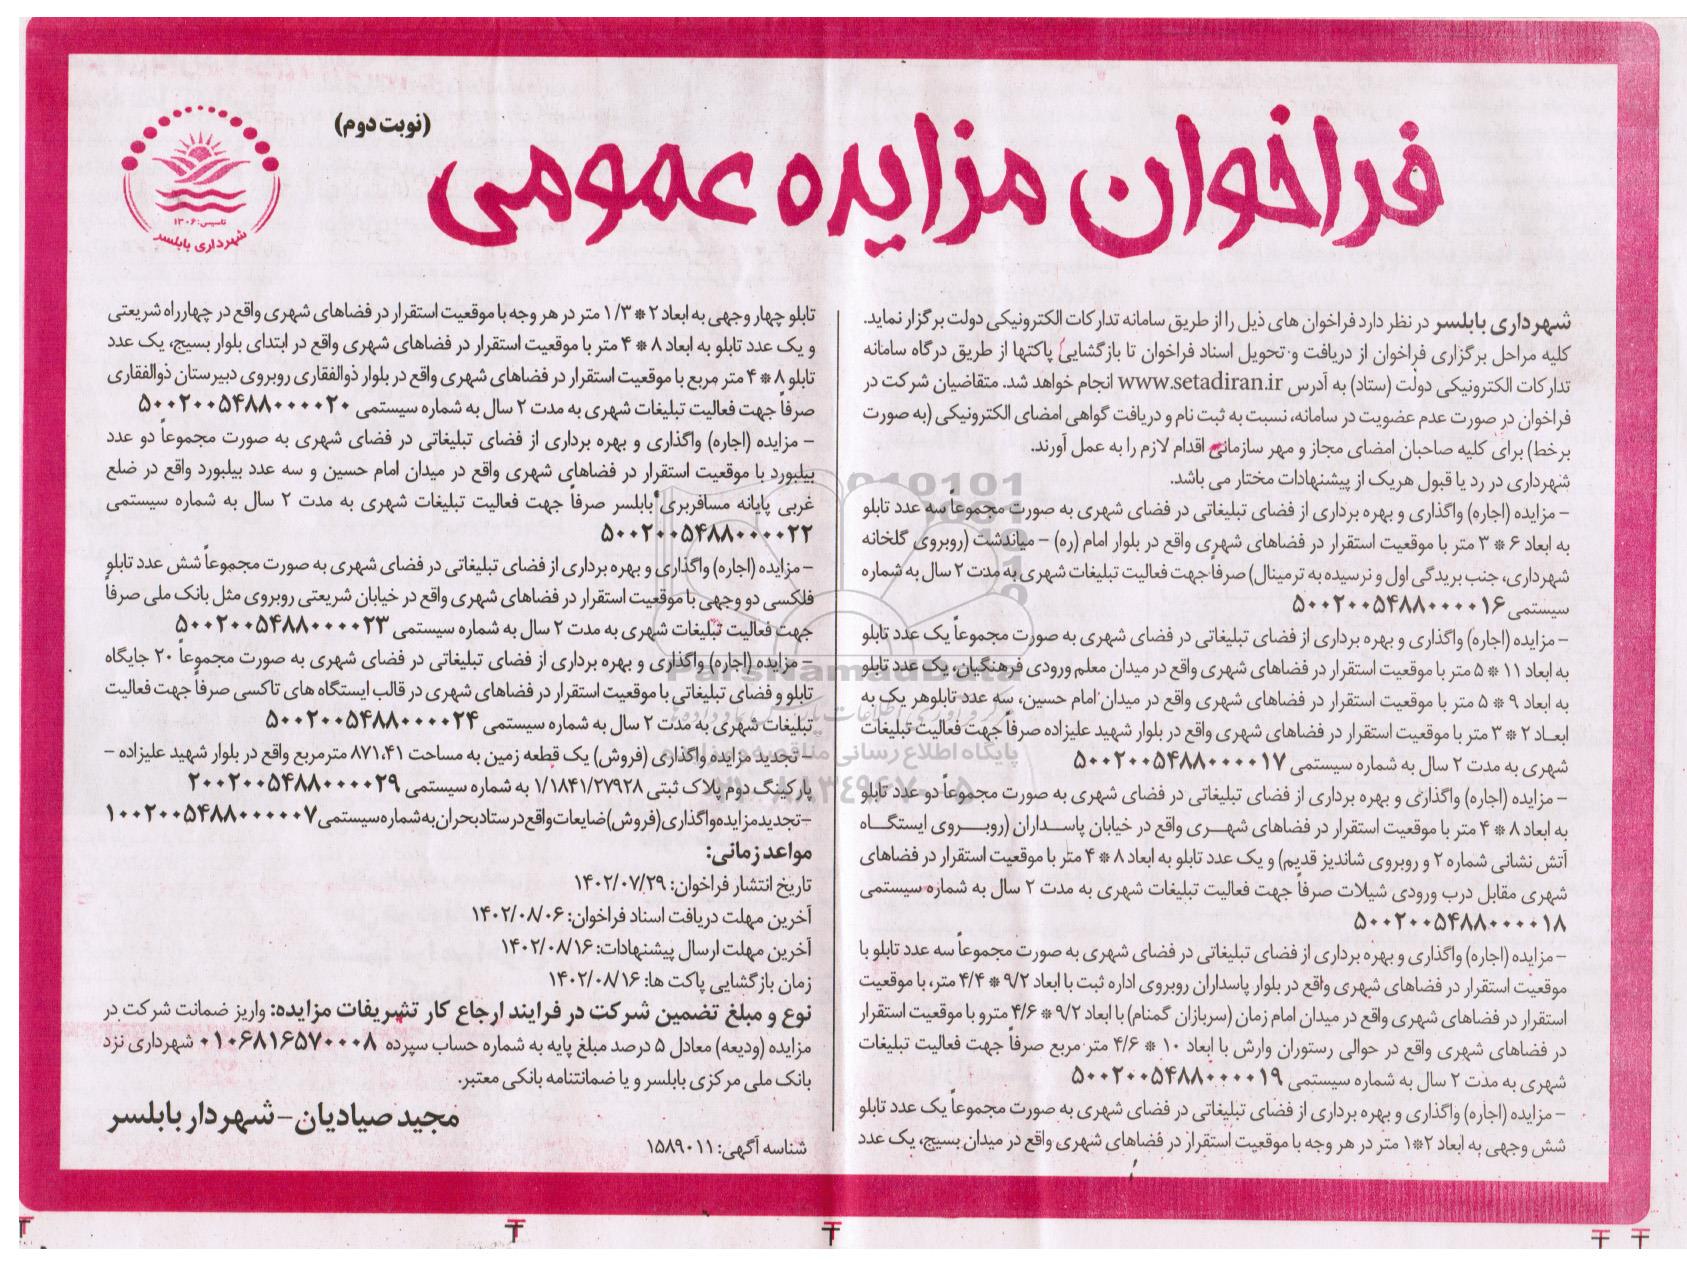 فراخوان مزایده عمومی
(نوبت دوم)
تاسیس: ۱۳۰۶
شهرداری بابلسر
شهرداری بابلسر در نظر دارد فراخوان های ذیل را از طریق سامانه تدارکات الکترونیکی دولت برگزار نماید.
کلیه مراحل برگزاری فراخوان از دریافت و تحویل اسناد فراخوان تا بازگشایی پاکتها از طریق درگاه سامانه
تدارکات الکترونیکی دولت (ستاد) به آدرس www.setadiran.ir انجام خواهد شد. متقاضیان شرکت در
فراخوان در صورت عدم عضویت در سامانه، نسبت به ثبت نام و دریافت گواهی امضای الکترونیکی (به صورت
برخط) برای کلیه صاحبان امضای مجاز و مهر سازمانی اقدام لازم را به عمل آورند.
شهرداری در رد یا قبول هریک از پیشنهادات مختار می باشد.
- مزایده (اجاره) واگذاری و بهره برداری از فضای تبلیغاتی در فضای شهری به صورت مجموعاً سه عدد تابلو
به ابعاد ۶ * ۳ متر با موقعیت استقرار در فضاهای شهری واقع در بلوار امام (ره) – میاندشت (روبروی گلخانه
شهرداری، جنب بریدگی اول و نرسیده به ترمینال) صرفاً جهت فعالیت تبلیغات شهری به مدت ۲ سال به شماره
سیستمی ۵۰۰۲۰۰۵۴۸۸۰۰۰۰۱۶
- مزایده (اجاره) واگذاری و بهره برداری از فضای تبلیغاتی در فضای شهری به صورت مجموعاً یک عدد تابلو
به ابعاد ۱۱ * ۵ متر با موقعیت استقرار در فضاهای شهری واقع در میدان معلم ورودی فرهنگیان، یک عدد تابلو
به ابعاد ۹ * ۵ متر با موقعیت استقرار در فضاهای شهری واقع در میدان امام حسین، سه عدد تابلوهر یک به
ابعـاد ۲ * ۳ متر با موقعیت استقرار در فضاهای شهری واقع در بلوار شهید علیزاده صرفاً جهت فعالیت تبلیغات
شهری به مدت ۲ سال به شماره سیستمی ۵۰۰۲۰۰۵۴۸۸۰۰۰۰۱۷
- مزایده (اجاره) واگذاری و بهره برداری از فضای تبلیغاتی در فضای شهری به صورت مجموعاً دو عدد تابلو
به ابعاد ۸ * ۴ متر با موقعیت استقرار در فضاهای شهــری واقع در خیابان پاســداران (روبــروی ایستگــاه
آتش نشانی شماره ۲ و روبروی شاندیز قدیم) و یک عدد تابلو به ابعاد ۸ * ۴ متر با موقعیت استقرار در فضاهای
شهری مقابل درب ورودی شیلات صرفاً جهت فعالیت تبلیغات شهری به مدت ۲ سال به شماره سیستمی
۵۰۰۲۰۰۵۴۸۸۰۰۰۰۱۸
- مزایده (اجاره) واگذاری و بهره برداری از فضای تبلیغاتی در فضای شهری به صورت مجموعاً سه عدد تابلو با
موقعیت استقرار در فضاهای شهری واقع در بلوار پاسداران روبروی اداره ثبت با ابعاد ۹/۲ * ۴/۴ متر، با موقعیت
استقرار در فضاهای شهری واقع در میدان امام زمان (سربازان گمنام) با ابعاد ۹/۲ * ۴/۶ مترو با موقعیت استقرار
در فضاهای شهری واقع در حوالی رستوران وارش با ابعاد ۱۰ * ۴/۶ متر مربع صرفاً جهت فعالیت تبلیغات
شهری به مدت ۲ سال به شماره سیستمی ۵۰۰۲۰۰۵۴۸۸۰۰۰۰۱۹
- مزایده (اجاره) واگذاری و بهره برداری از فضای تبلیغاتی در فضای شهری به صورت مجموعاً یک عدد تابلو
شش وجهی به ابعاد ۲*۱ متر در هر وجه با موقعیت استقرار در فضاهای شهری واقع در میدان بسیج، یک عدد
تابلو چهار وجهی به ابعاد ۲ * ۱/۳ متر در هر وجه با موقعیت استقرار در فضاهای شهری واقع در چهارراه شریعتی
و یک عدد تابلو به ابعاد ۸ * ۴ متر با موقعیت استقرار در فضاهای شهری واقع در ابتدای بلوار بسیج، یک عدد
تابلو ۸ * ۴ متر مربع با موقعیت استقرار در فضاهای شهری واقع در بلوار ذوالفقاری روبروی دبیرستان ذوالفقاری
صرفاً جهت فعالیت تبلیغات شهری به مدت ۲ سال به شماره سیستمی ۵۰۰۲۰۰۵۴۸۸۰۰۰۰۲۰
- مزایده (اجاره) واگذاری و بهره برداری از فضای تبلیغاتی در فضای شهری به صورت مجموعاً دو عدد
بیلبورد با موقعیت استقرار در فضاهای شهری واقع در میدان امام حسین و سه عدد بیلبورد واقع در ضلع
غربی پایانه مسافربری بابلسر صرفاً جهت فعالیت تبلیغات شهری به مدت ۲ سال به شماره سیستمی
۵۰۰۲۰۰۵۴۸۸۰۰۰۰۲۲
- مزایده (اجاره) واگذاری و بهره برداری از فضای تبلیغاتی در فضای شهری به صورت مجموعاً شش عدد تابلو
فلکسی دو وجهی با موقعیت استقرار در فضاهای شهری واقع در خیابان شریعتی روبروی مثل بانک ملی صرفاً
جهت فعالیت تبلیغات شهری به مدت ۲ سال به شماره سیستمی ۵۰۰۲۰۰۵۴۸۸۰۰۰۰۲۳
- مزایده (اجاره) واگذاری و بهره برداری از فضای تبلیغاتی در فضای شهری به صورت مجموعاً ۲۰ جایگاه
تابلو و فضای تبلیغاتی با موقعیت استقرار در فضاهای شهری در قالب ایستگاه های تاکسی صرفاً جهت فعالیت
تبلیغات شهری به مدت ۲ سال به شماره سیستمی ۵۰۰۲۰۰۵۴۸۸۰۰۰۰۲۴
- تجدید مزایده واگذاری (فروش) یک قطعه زمین به مساحت ۸۷۱.۴۱ مترمربع واقع در بلوار شهید علیزاده –
پارکینگ دوم پلاک ثبتی ۱/۱۸۴۱/۲۷۹۲۸ به شماره سیستمی ۲۰۰۲۰۰۵۴۸۸۰۰۰۰۲۹
-تجدیدمزایده‌واگذاری(فروش)ضایعات‌واقع‌در‌ستادبحران‌به‌شماره‌سیستمی ۱۰۰۲۰۰۵۴۸۸۰۰۰۰۰۷
مواعد زمانی:
تاریخ انتشار فراخوان: ۱۴۰۲/۰۷/۲۹
آخرین مهلت دریافت اسناد فراخوان: ۱۴۰۲/۰۸/۰۶
آخرین مهلت ارسال پیشنهادات: ۱۴۰۲/۰۸/۱۶
زمان بازگشایی پاکت ها: ۱۴۰۲/۰۸/۱۶
نوع و مبلغ تضمین شرکت در فرایند ارجاع کار تشریفات مزایده: واریز ضمانت شرکت در
مزایده (ودیعه) معادل ۵ درصد مبلغ پایه به شماره حساب سپرده ۰۱۰۶۸۱۶۵۷۰۰۰۸ شهرداری نزد
بانک ملی مرکزی بابلسر و یا ضمانتنامه بانکی معتبر.
مجید صیادیان – شهردار بابلسر
شناسه آگهی: ۱۵۸۹۰۱۱
ParsNamadData
پایگاه اطلاع رسانی مناقصه و مزایده